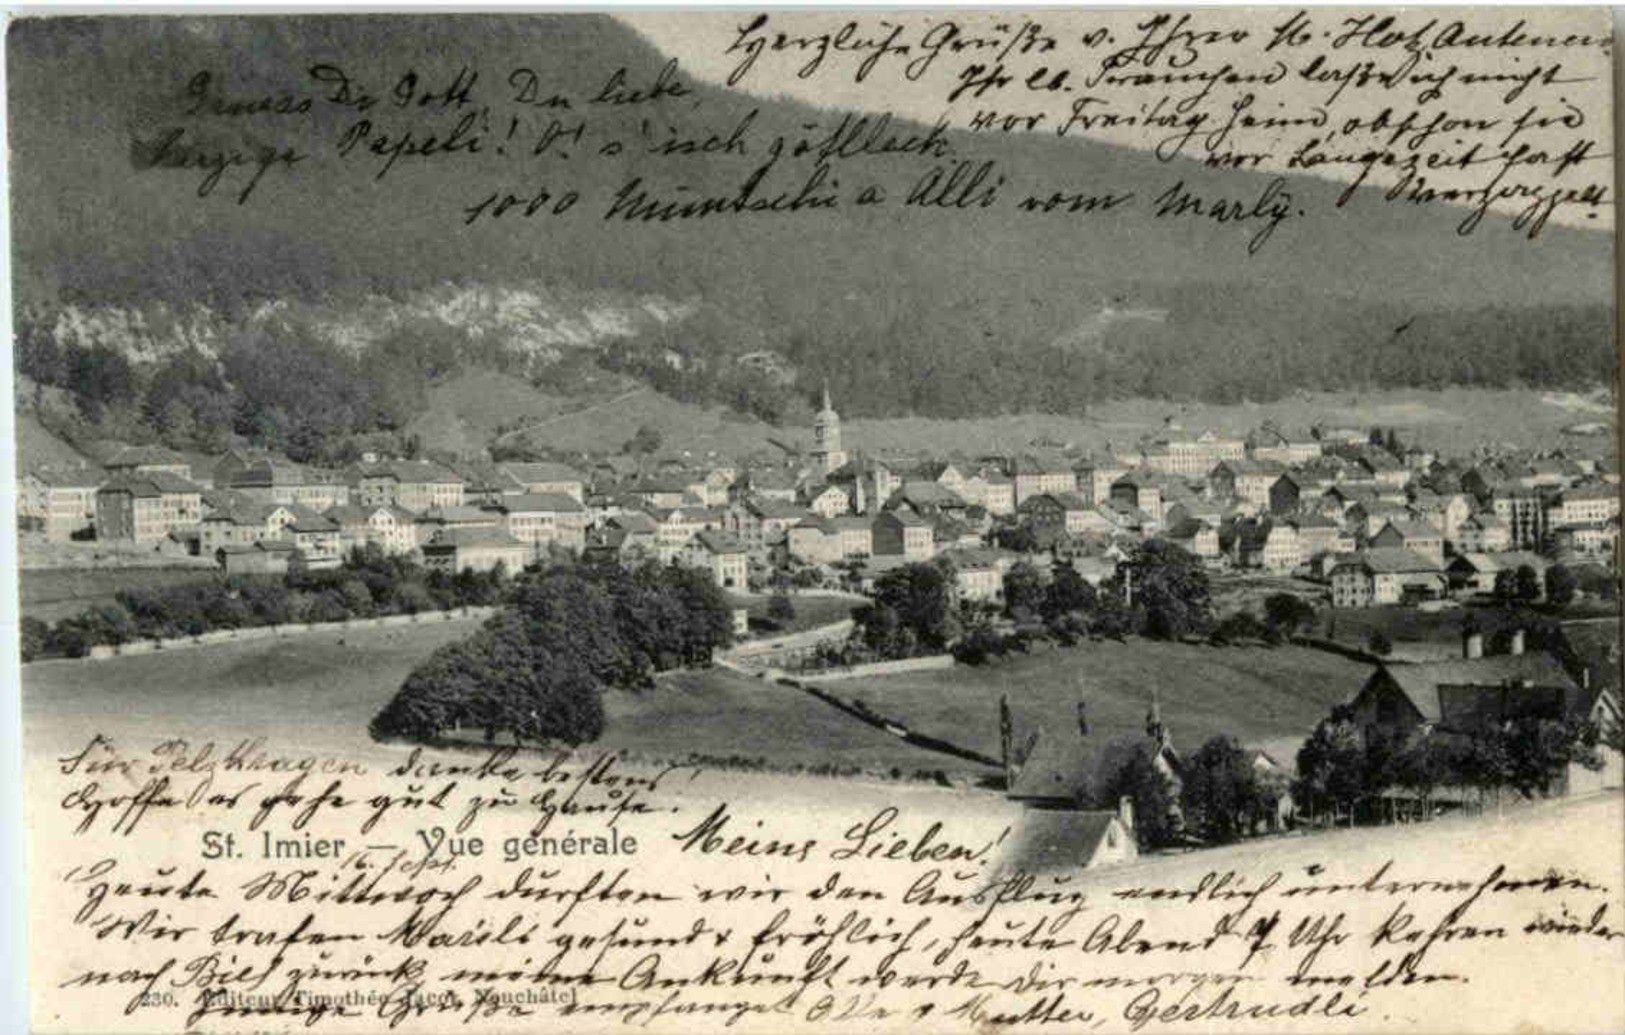 Herzliche Grüße v. Ihrer M. Hotz Antenen
Ihr lb. Frauchen laße ich nicht
vor Freitag heim, obschon sie
vor Langezeit fast
verzappelt
Gruess Di Gott, Du liebe,
herzige Papeli! O! s'isch göttlech
1000 Müntschi a Alli vom Marly.
Für Pelzkragen danke bestens,
Hoffe es gehe gut zu Hause.
St. Imier — Vue générale
Meine Lieben!
16. Sept.
Heute Mittwoch durften wir den Ausflug endlich unternehmen.
Wir trafen gesund & fröhlich, heute Abend 7 Uhr kehren wieder
nach Biel zurück, meine Ankunft werde Dir morgen melden.
Innige Grüße empfanget Alle Mutter, Gertrudli.
230. Editeur Timothée Jacot, Neuchâtel